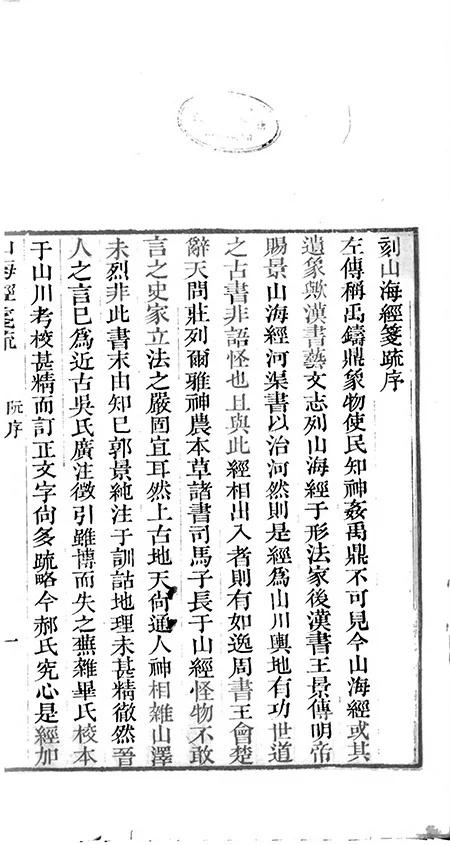 刻山海經箋疏序
左傳稱禹鑄鼎象物使民知神姦禹鼎不可見今山海經或其
遺象歟漢書藝文志列山海經于形法家後漢書王景傳明帝
賜景山海經河渠書以治河然則是經爲山川輿地有功世道
之古書非語怪也且與此經相出入者則有如逸周書王會楚
辭天問莊列爾雅神農本草諸書司馬子長于山經怪物不敢
言之史家立法之嚴固宜耳然上古地天尙通人神相雜山澤
未烈非此書末由知已郭景純注于訓詁地理未甚精徹然晉
人之言已爲近古吳氏廣注徵引雖博而失之蕪雜畢氏校本
于山川考校甚精而訂正文字尙多疏略今郝氏究心是經加
山海經箋疏 阮序 一